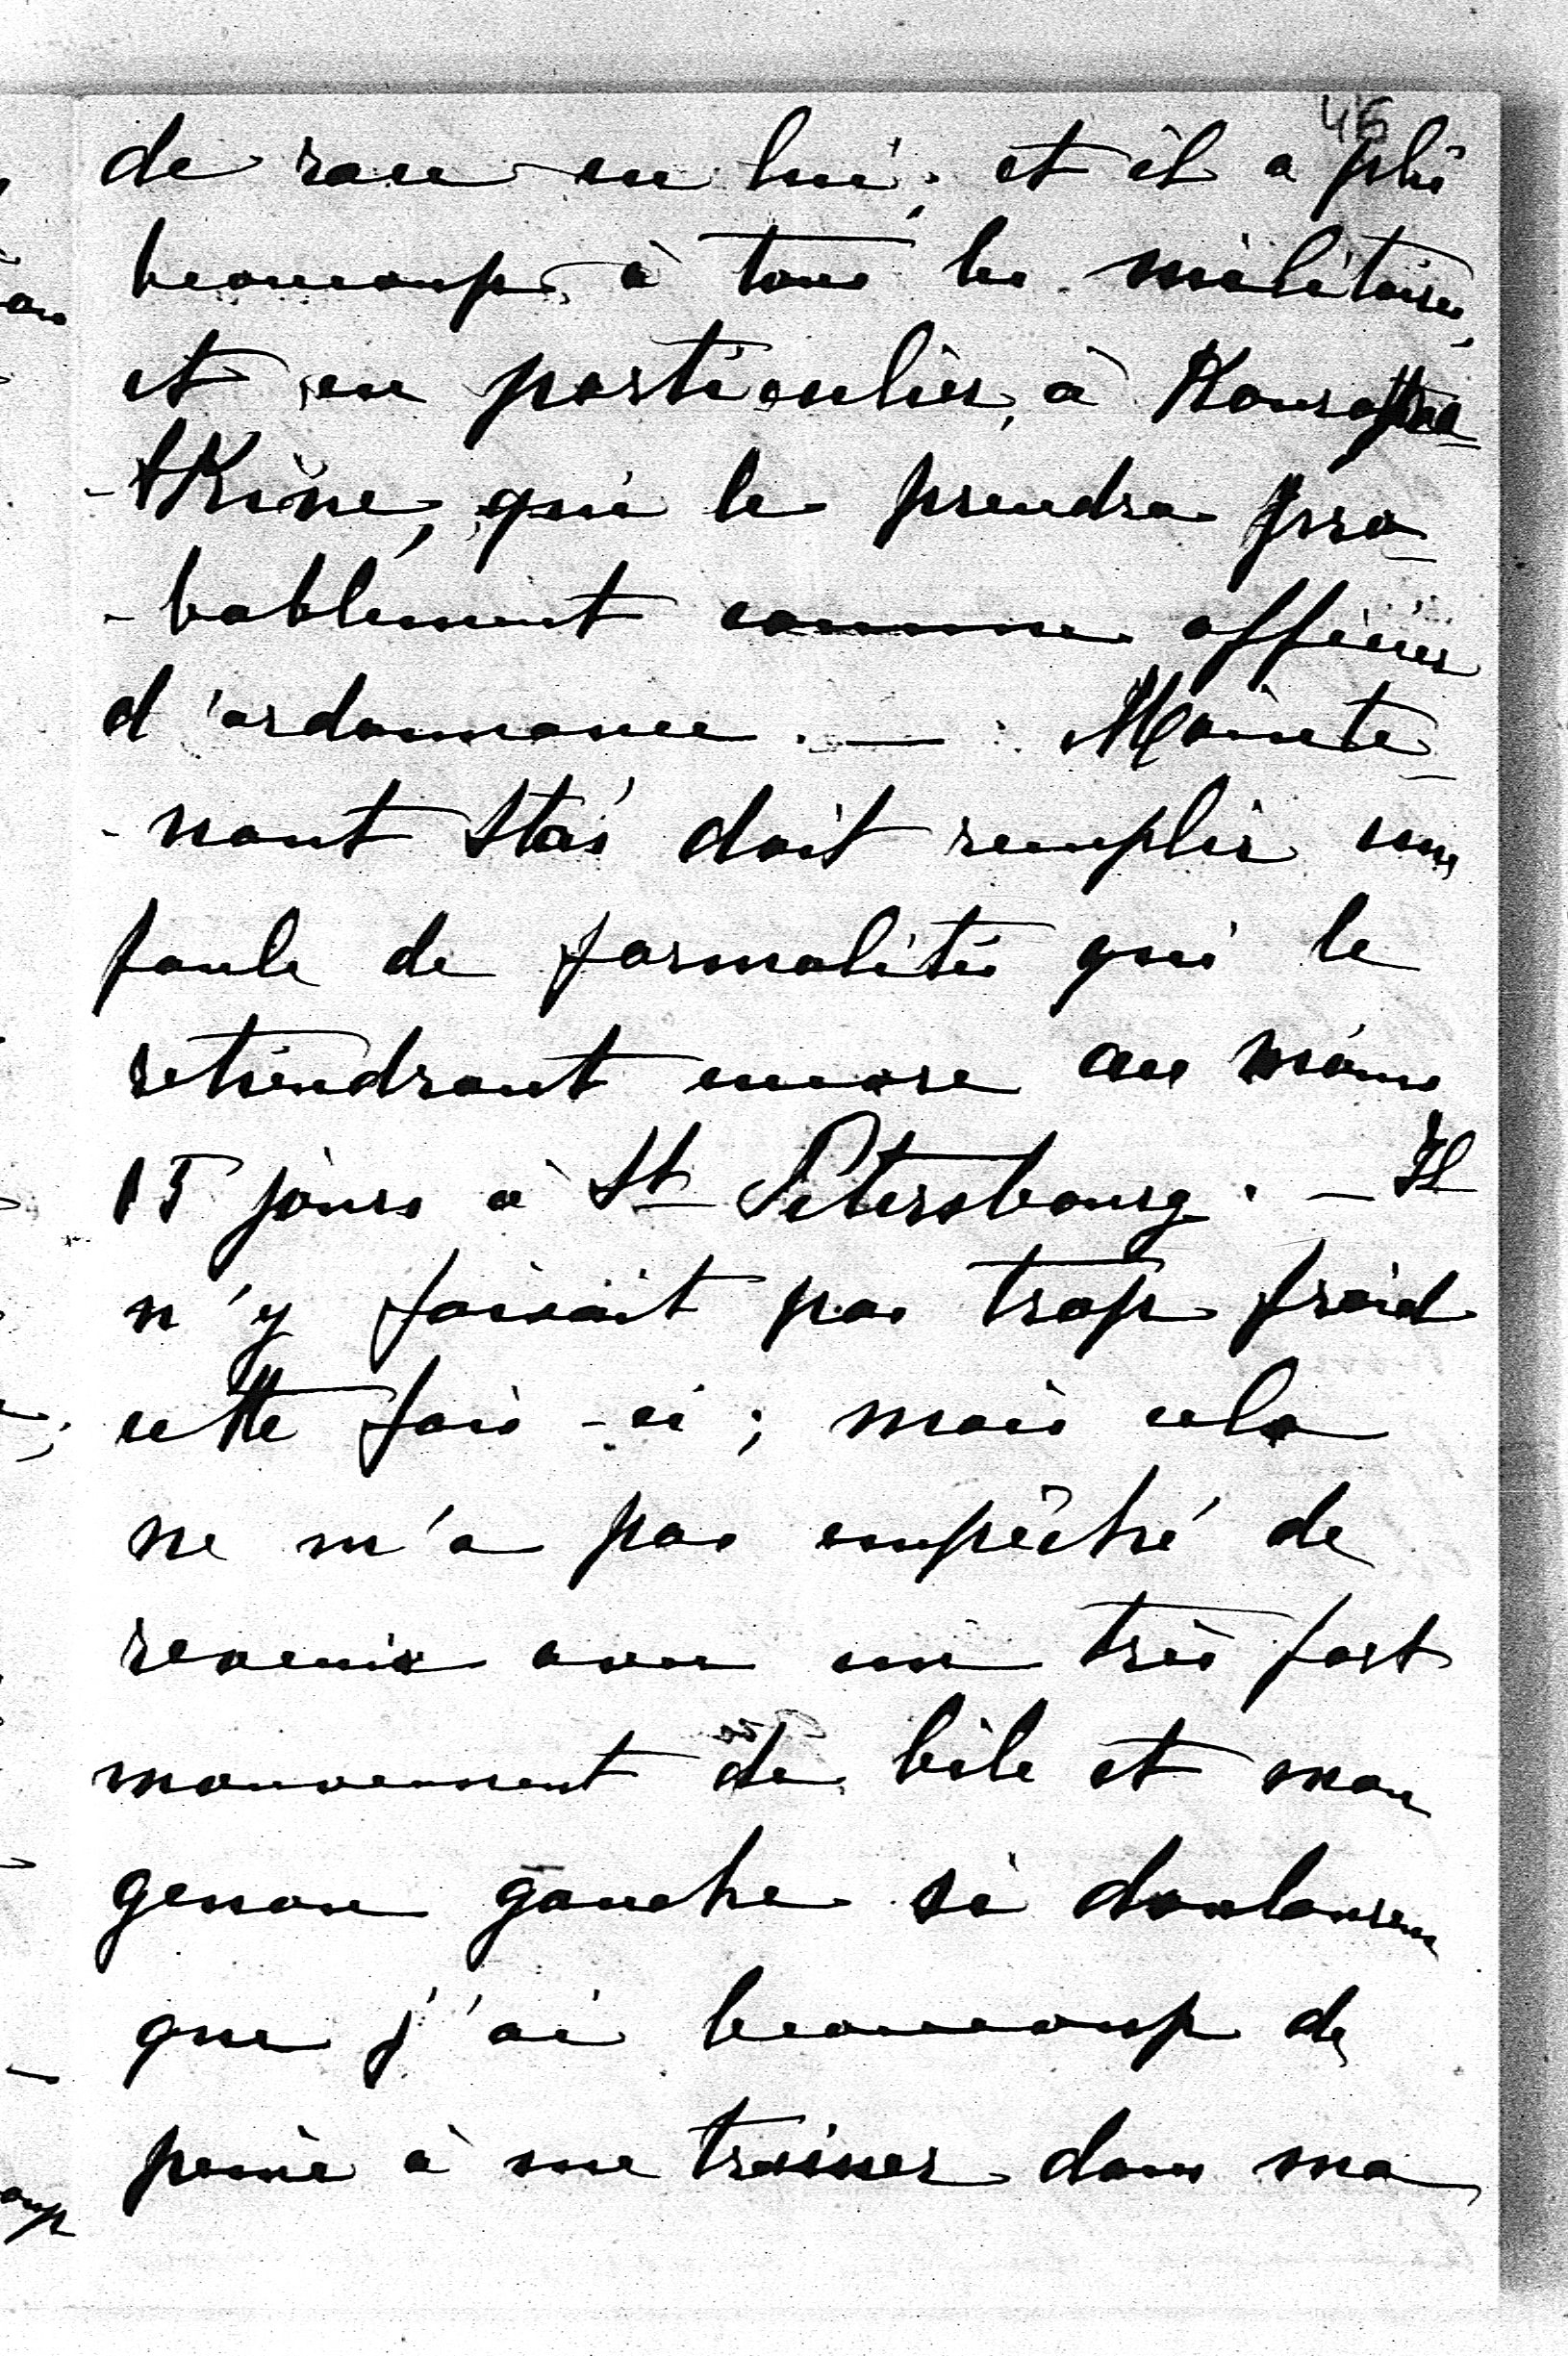 45
de race en lui; et il a plû
beaucoup à tous les militaires,
et en particulier, à Kouropa-
-tkine, qui le prendra pro-
-bablement comme officier
d'ordonnance. — Mainte-
-nant Stas doit remplir une
foule de formalités qui le
retiendront encore au moins
15 jours à St Pétersbourg. — Il
n'y faisait pas trop froid
cette fois-ci; mais cela
ne m'a pas empêché de
revenir avec un très fort
mouvement de bile et mon
genou gauche si douloureux
que j'ai beaucoup de
peine à me traîner dans ma